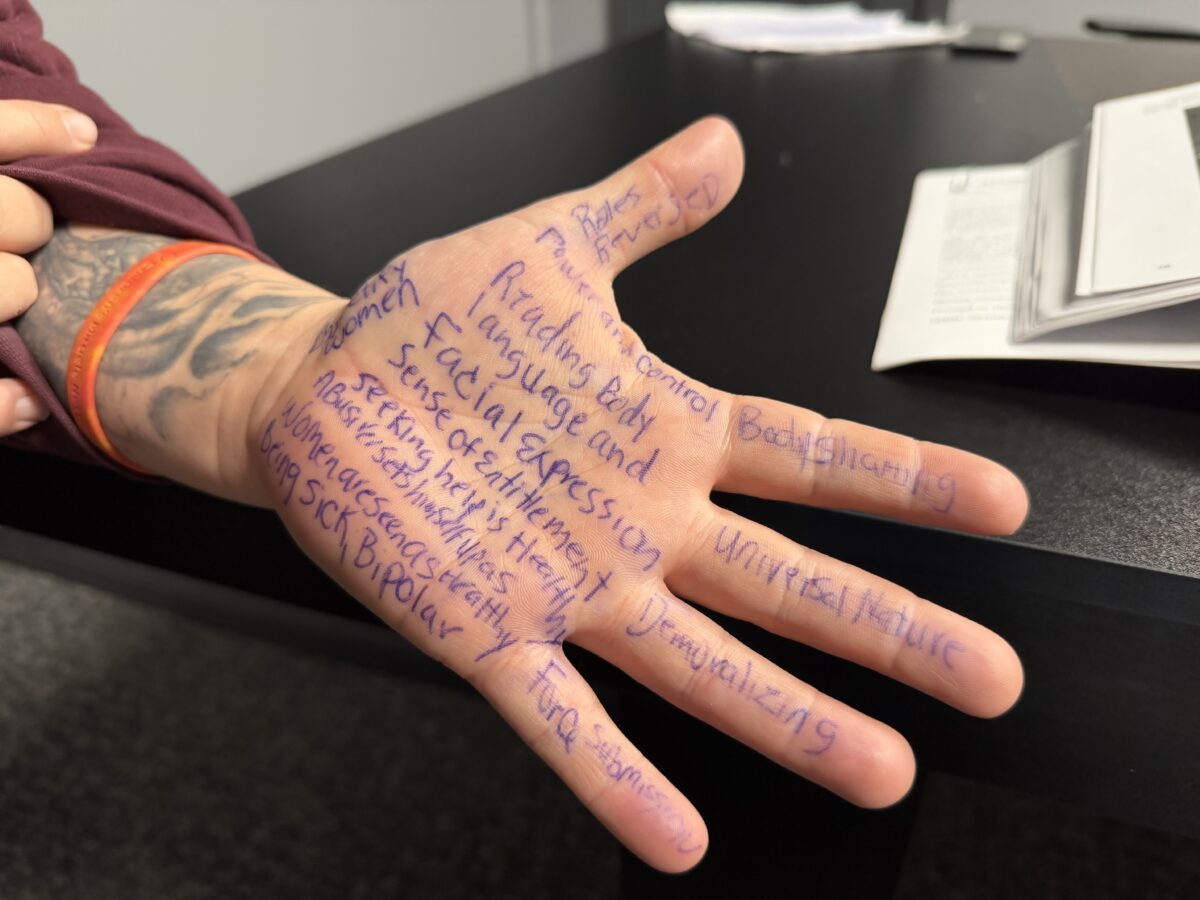 Roles
Reversed
Power and control
Reading Body
language and
Facial Expression
Sense of Entitlement
seeking help is Healthy
Abuser sets himself up as
Women are seen as Healthy
being sick, Bipolar
Women
Body Shaming
Universal Nature
Demoralizing
Force Submission